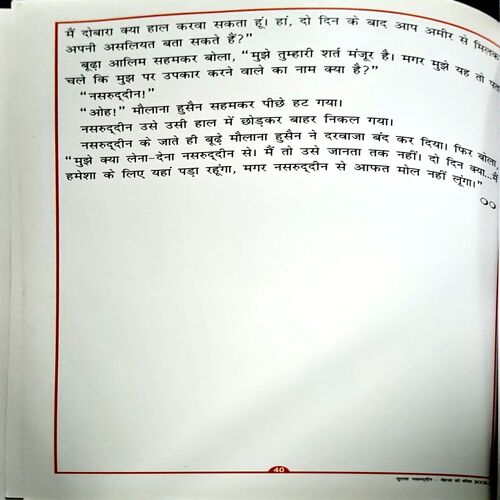 मैं दोबारा क्या हाल करवा सकता हूं। हां, दो दिन के बाद आप अमीर से मिलकर
अपनी असलियत बता सकते हैं?”
बूढ़ा आलिम सहमकर बोला, “मुझे तुम्हारी शर्त मंजूर है। मगर मुझे यह तो पता
चले कि मुझ पर उपकार करने वाले का नाम क्या है?”
“नसरुद्दीन!”
“ओह!” मौलाना हुसैन सहमकर पीछे हट गया।
नसरुद्दीन उसे उसी हाल में छोड़कर बाहर निकल गया।
नसरुद्दीन के जाते ही बूढ़े मौलाना हुसैन ने दरवाजा बंद कर दिया। फिर बोला,
“मुझे क्या लेना-देना नसरुद्दीन से। मैं तो उसे जानता तक नहीं। दो दिन क्या...मैं
हमेशा के लिए यहां पड़ा रहूंगा, मगर नसरुद्दीन से आफत मोल नहीं लूंगा।”
40
नसरुद्दीन -